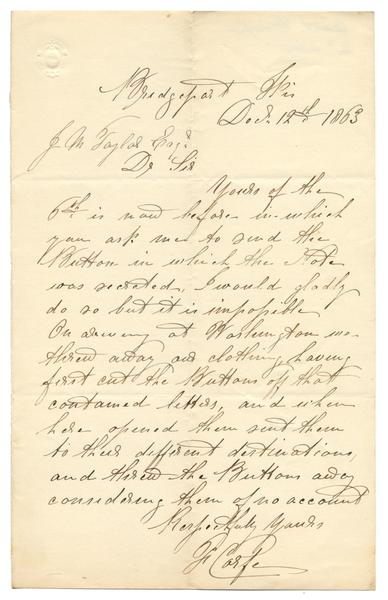 Bridgeport Wis
Dec. 12th 1863
J. M. Taylor Esqr
Dr Sir
Yours of the
6th is now before in which
you ask me to send the
Button in which the Note
was secreted, I would gladly
do so but it is impossible
On arriving at Washington we
threw away our clothing, having
first cut the Buttons off that
contained letters, and when
here opened them sent them
to their different destinations
and threw the Buttons away
considering them of no account
Respectfully Yours